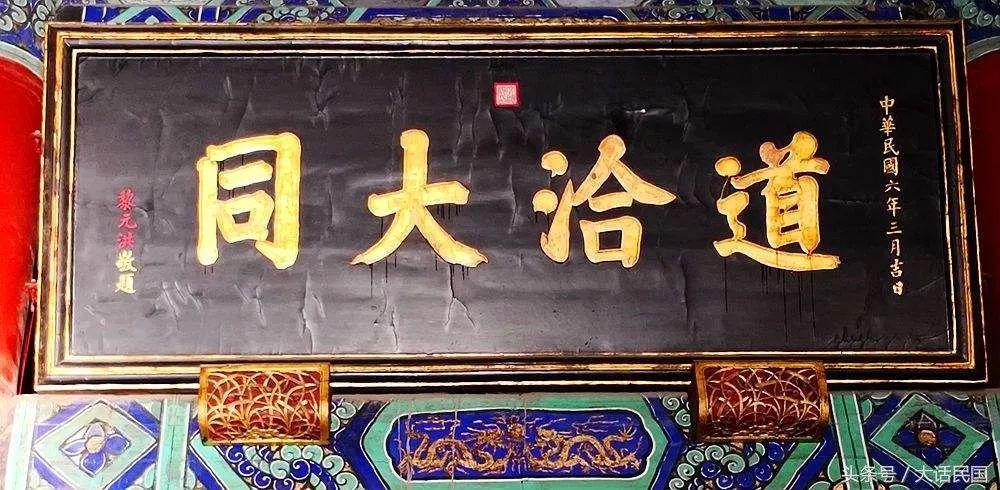 道洽大同
中華民國六年三月吉日
黎元洪敬題
头条号 / 大话民国